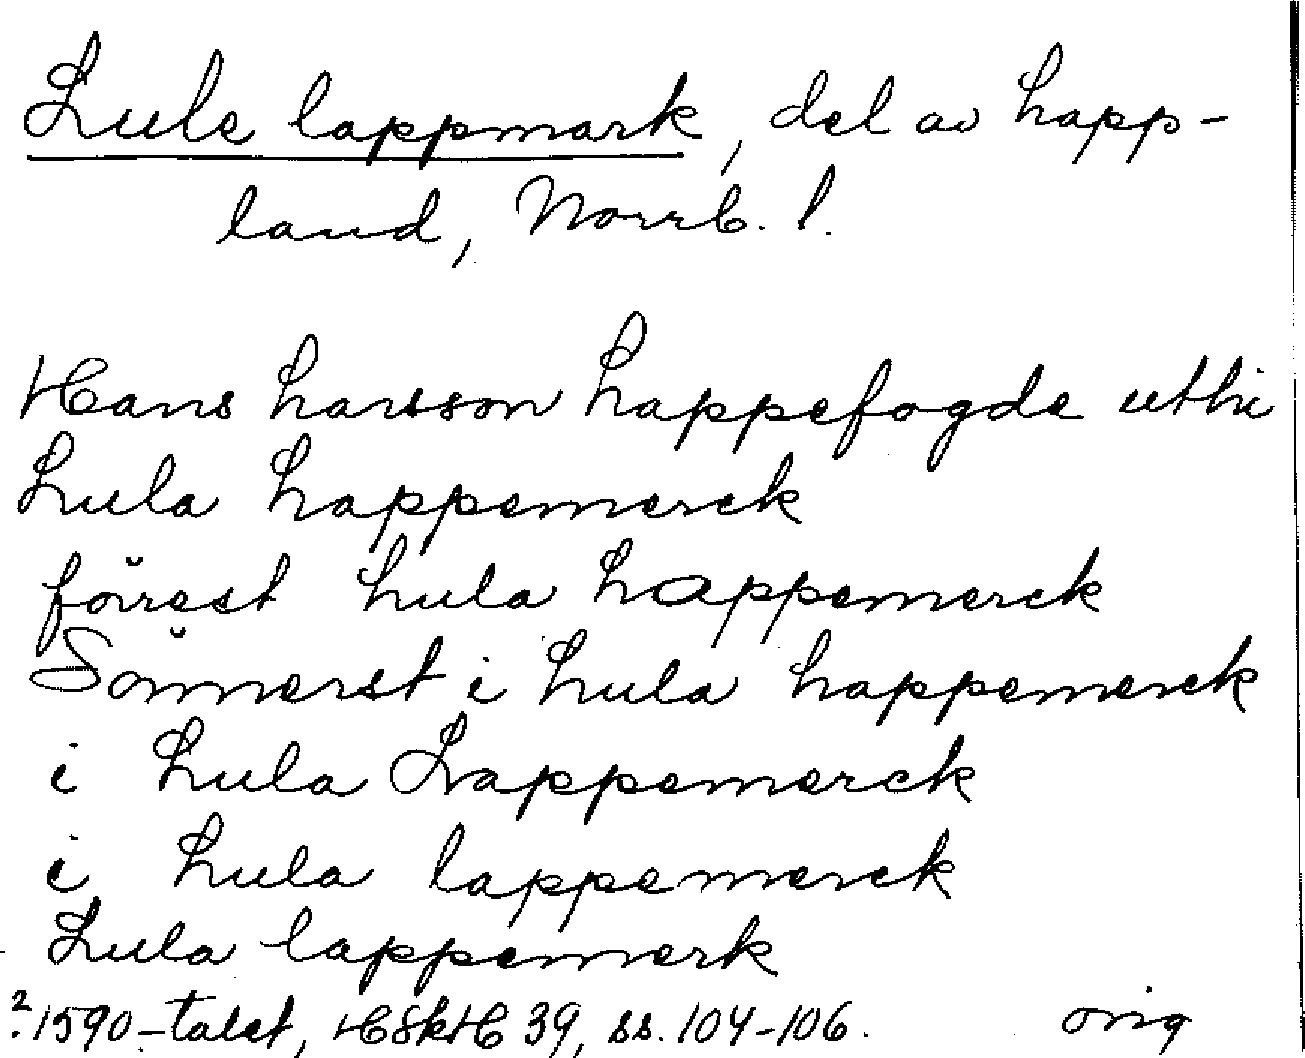 Lule lappmark, del av Lapp-
land, Norrb. l.
Hans Larsson Lappefogde uthi
Lula Lappemerck
förrest Lula Lappemerck
Sönnerst i Lula Lappemerck
i Lula Lappemerck
i Lula lappemerck
Lula lappemerk
? 1590-talet, HSkH 39, ss. 104-106. orig